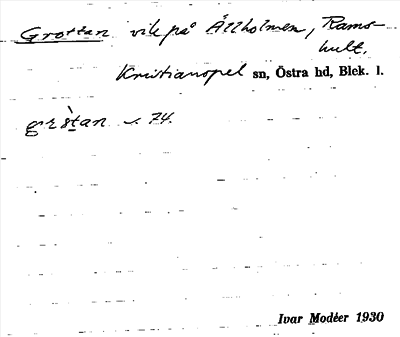 Grottan vik på Ållholmen, Rams-
hult.
Kristianopel sn, Östra hd, Blek. l.
gròtan ⌣. 74.
Ivar Modéer 1930